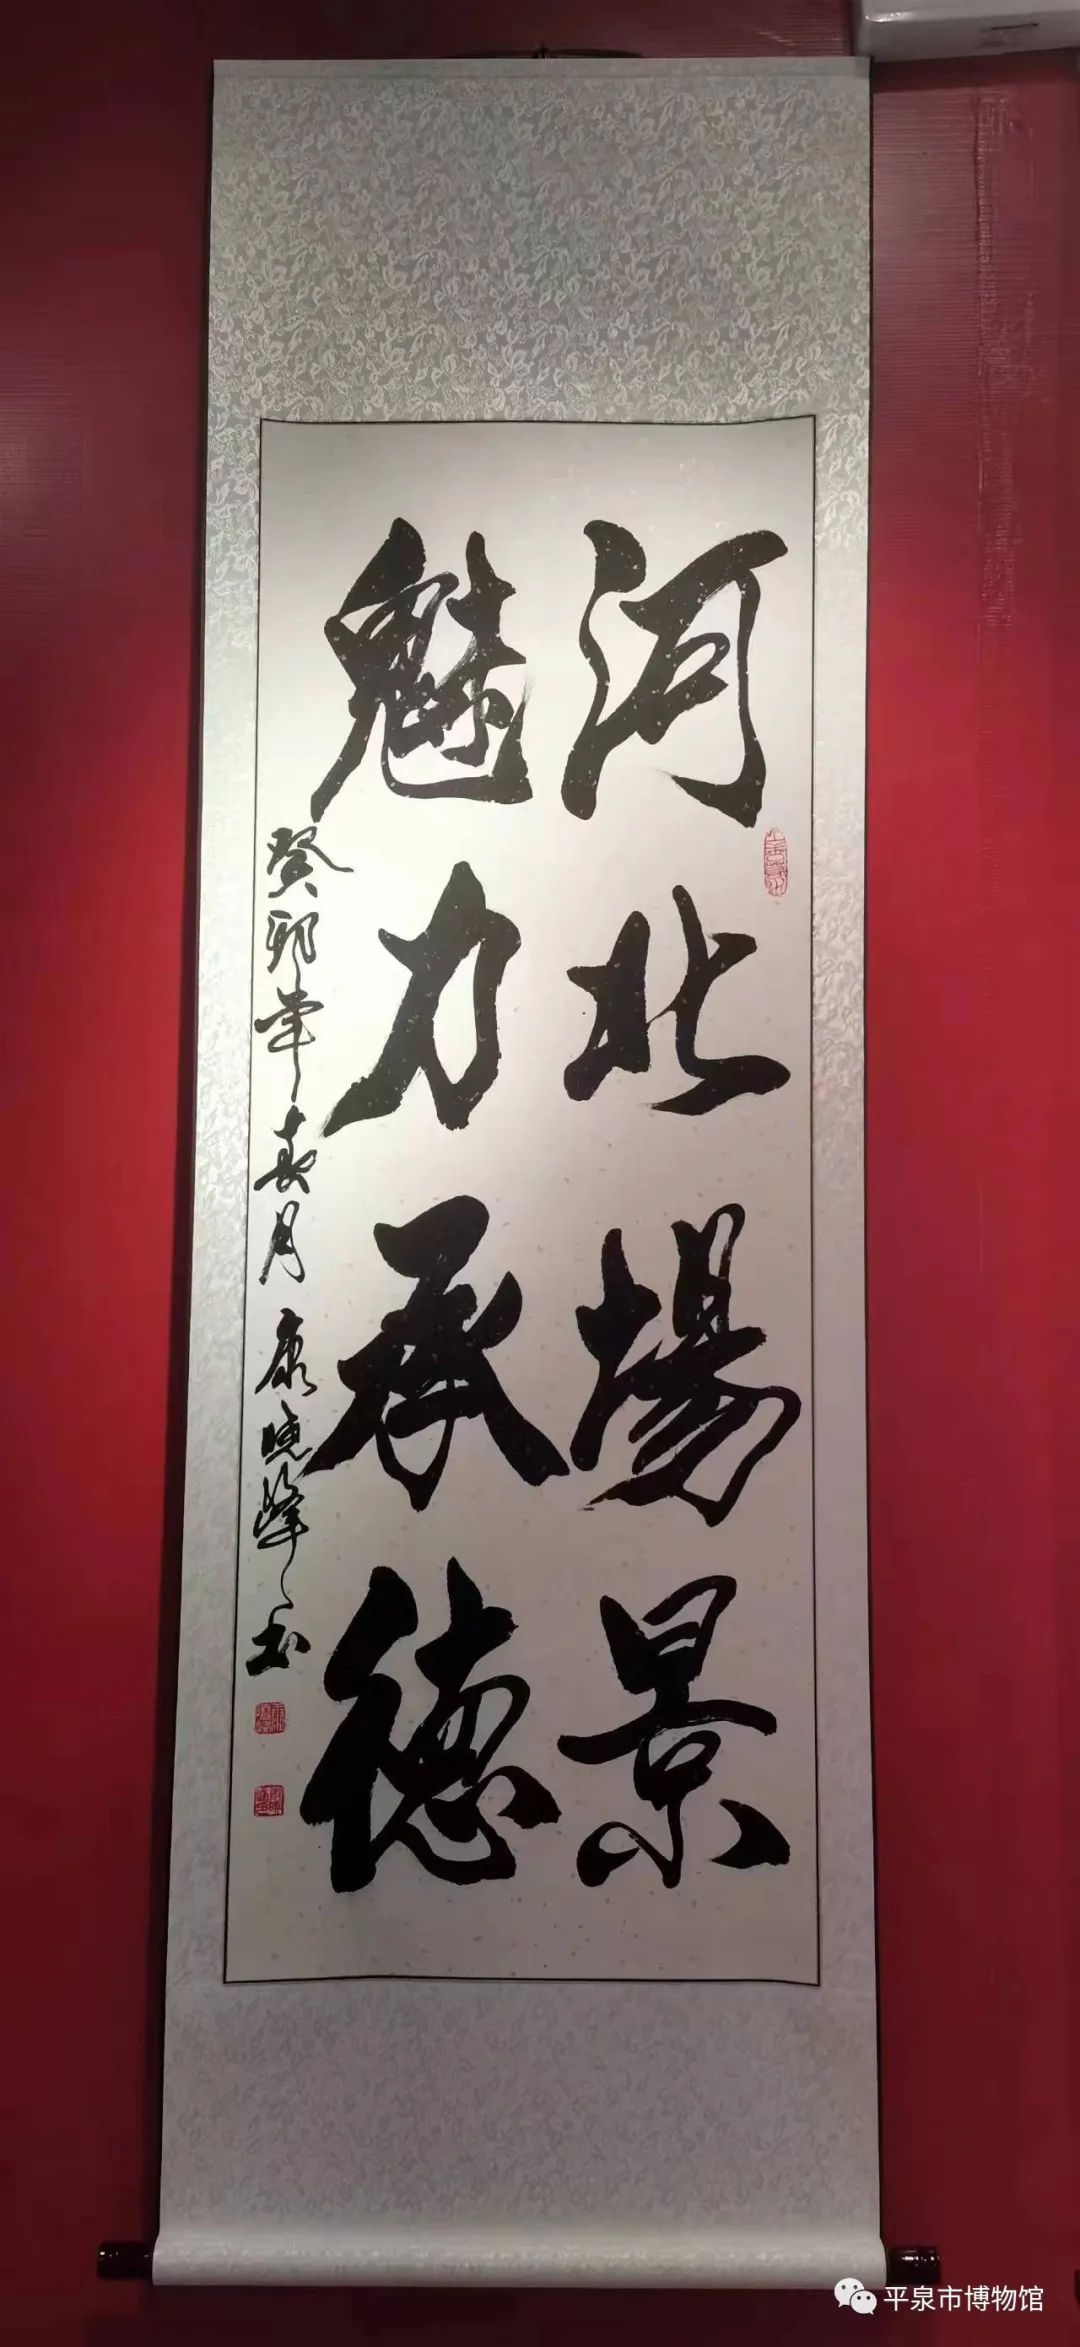 河北場景
魅力承德
癸卯年春月康曉峰書
平泉市博物馆